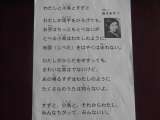 わたしと小鳥とすずと
わたしが両手をひろげても、
お空はちっともとべないが
とべる小鳥はわたしのように、
地面（じべた）をはやくは走れない。
わたしがからだをゆすっても、
きれいな音はでないけど、
あの鳴るすずはわたしのように
たくさんなうたは知らないよ。
すずと、小鳥と、それからわたし、
みんなちがって、みんないい。